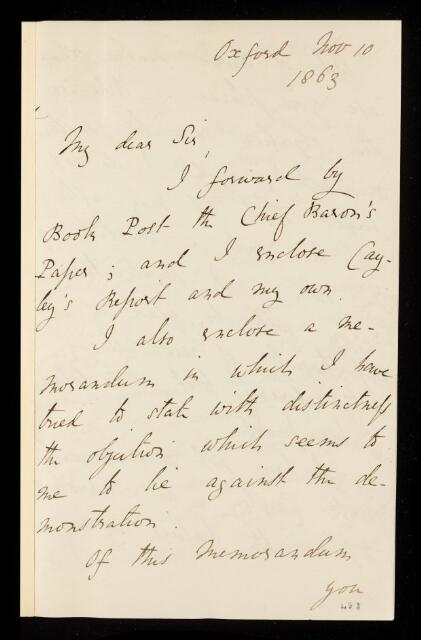 Oxford Nov 10
1863
My dear Sir,
I forward by
Book Post the Chief Baron's
Paper; and I enclose Cay-
ley's Report and my own.
I also enclose a me-
morandum in which I have
tried to state with distinctness
the objection which seems to
me to lie against the de-
monstration.
Of this Memorandum
you